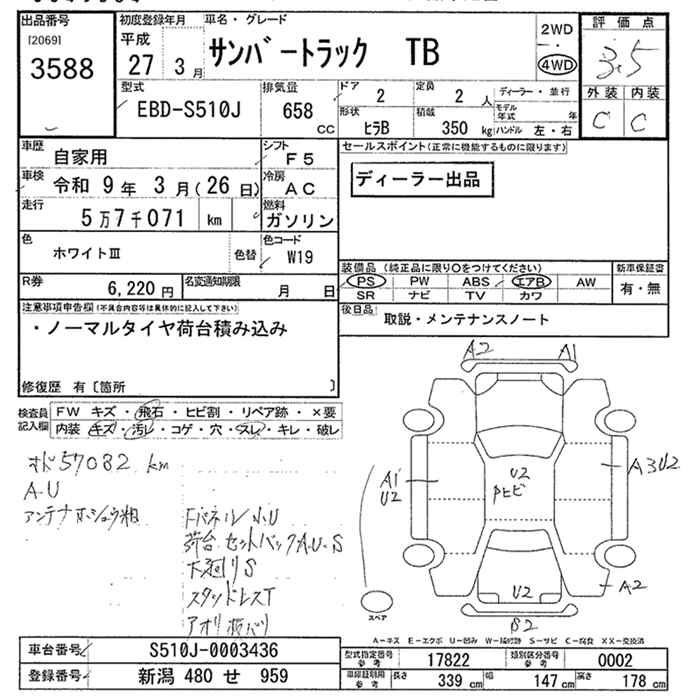 出品番号
[2069]
3588
初度登録年月
平成
27 3月
車名・グレード
サンバートラック TB
2WD
4WD
評価点
3.5
外装 内装
C C
型式
EBD-S510J
排気量
658
CC
ドア
2
定員
2 人
ディーラー・並行
形状
ヒラB
積載
350 kg
モデル年式 年
ハンドル 左・右
車歴
自家用
シフト
F5
車検
令和 9年 3月(26日)
冷房
AC
走行
5万7千071 km
燃料
ガソリン
色
ホワイトⅢ
色替
色コード
W19
R券
6,220円
名変通知期限
月 日
セールスポイント(正常に機能するものに限ります)
ディーラー出品
装備品 (純正品に限り○をつけてください)
新車保証書
PS PW ABS エアB AW
SR ナビ TV カワ
有・無
後日品
取説・メンテナンスノート
注意事項申告欄(不具合内容等は具体的に記入して下さい)
・ノーマルタイヤ荷台積み込み
修復歴 有〔箇所 〕
検査員
記入欄
FW キズ・飛石・ヒビ割・リペア跡・×要
内装 キズ・汚レ・コゲ・穴・スレ・キレ・破レ
57082 km
A・U
Fパネル小U
荷台セットバックA.U.S
下廻りS
スタッドレスT
A2 A1
A1
U2
U2
A3U2
U2
A2
B2
スペア
A-キズ E-エクボ U-凹み W-補修跡 S-サビ C-腐食 XX-交換済
車台番号
S510J-0003436
登録番号
新潟 480 せ 959
型式指定番号
参考
17822
類別区分番号
参考
0002
車庫証明用
参考
長さ
339 cm
幅
147 cm
高さ
178 cm